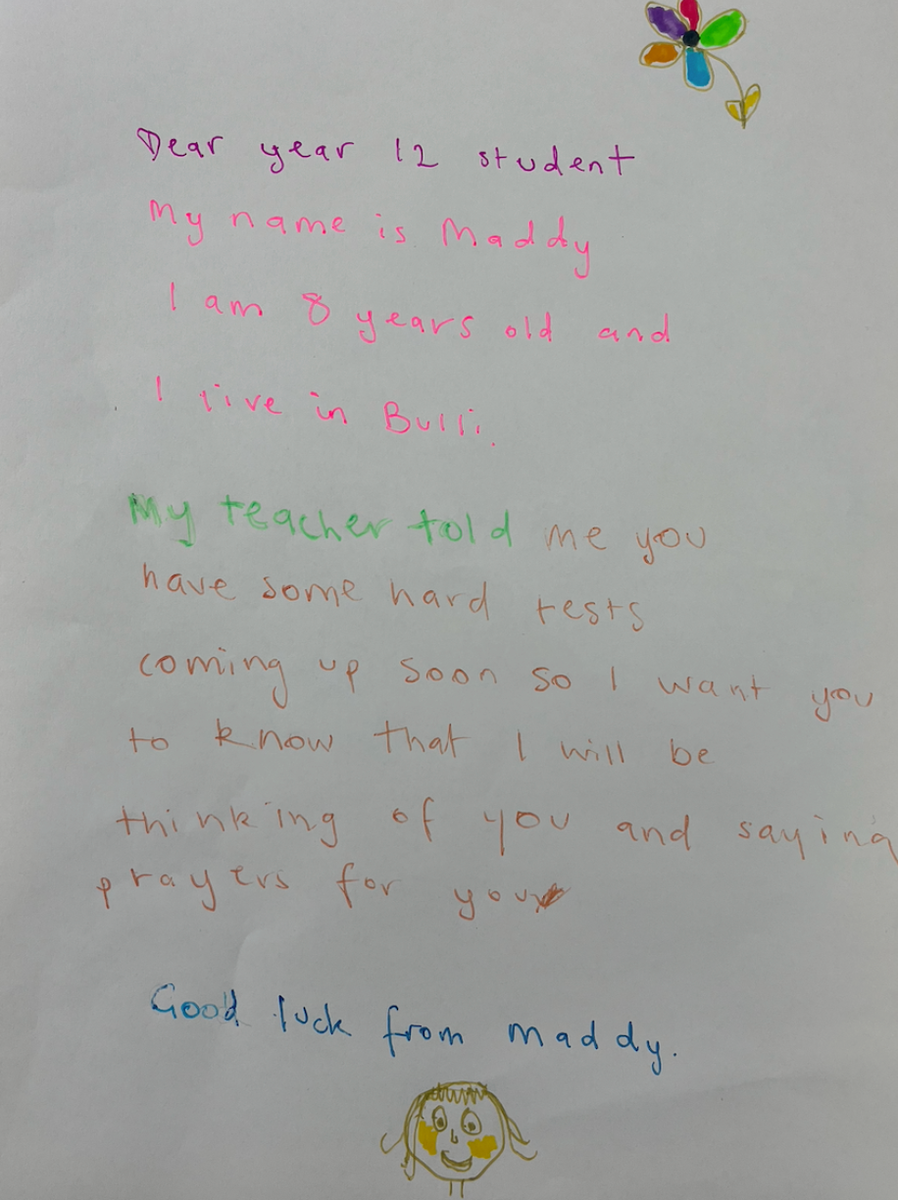 Dear year 12 student
My name is Maddy
I am 8 years old and
I live in Bulli.
My teacher told me you
have some hard tests
coming up soon so I want you
to know that I will be
thinking of you and saying
prayers for you
Good luck from maddy.